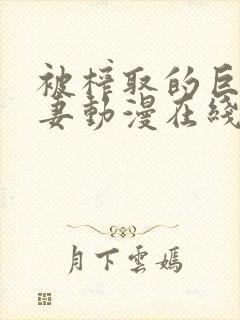 被榨取的巨
妻動漫在綫
月下雲嫣